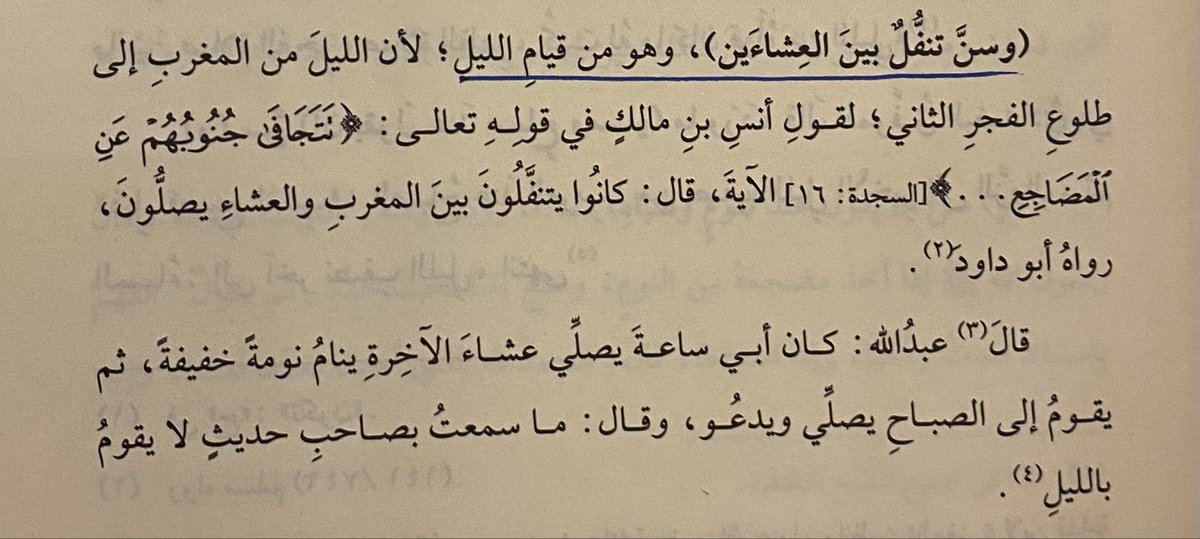 (وسنَّ تنفُّلٌ بينَ العِشاءَين)، وهو من قيامِ الليلِ؛ لأن الليلَ من المغربِ إلى
طلوعِ الفجرِ الثاني؛ لقولِ أنسِ بنِ مالكٍ في قولِهِ تعالى: ﴿نَتَجَافَىٰ جُنُوبُهُمْ عَنِ
ٱلْمَضَاجِعِ...﴾ [السجدة: ١٦] الآيةَ، قال: كانُوا يتنفَّلُونَ بينَ المغربِ والعشاءِ يصلُّونَ،
رواهُ أبو داودَ(٢).
قالَ(٣) عبدُالله: كان أبي ساعةَ يصلِّي عشاءَ الآخِرةِ ينامُ نومةً خفيفةً، ثم
يقومُ إلى الصباحِ يصلِّي ويدعُو، وقال: ما سمعتُ بصاحبِ حديثٍ لا يقومُ
بالليلِ(٤).